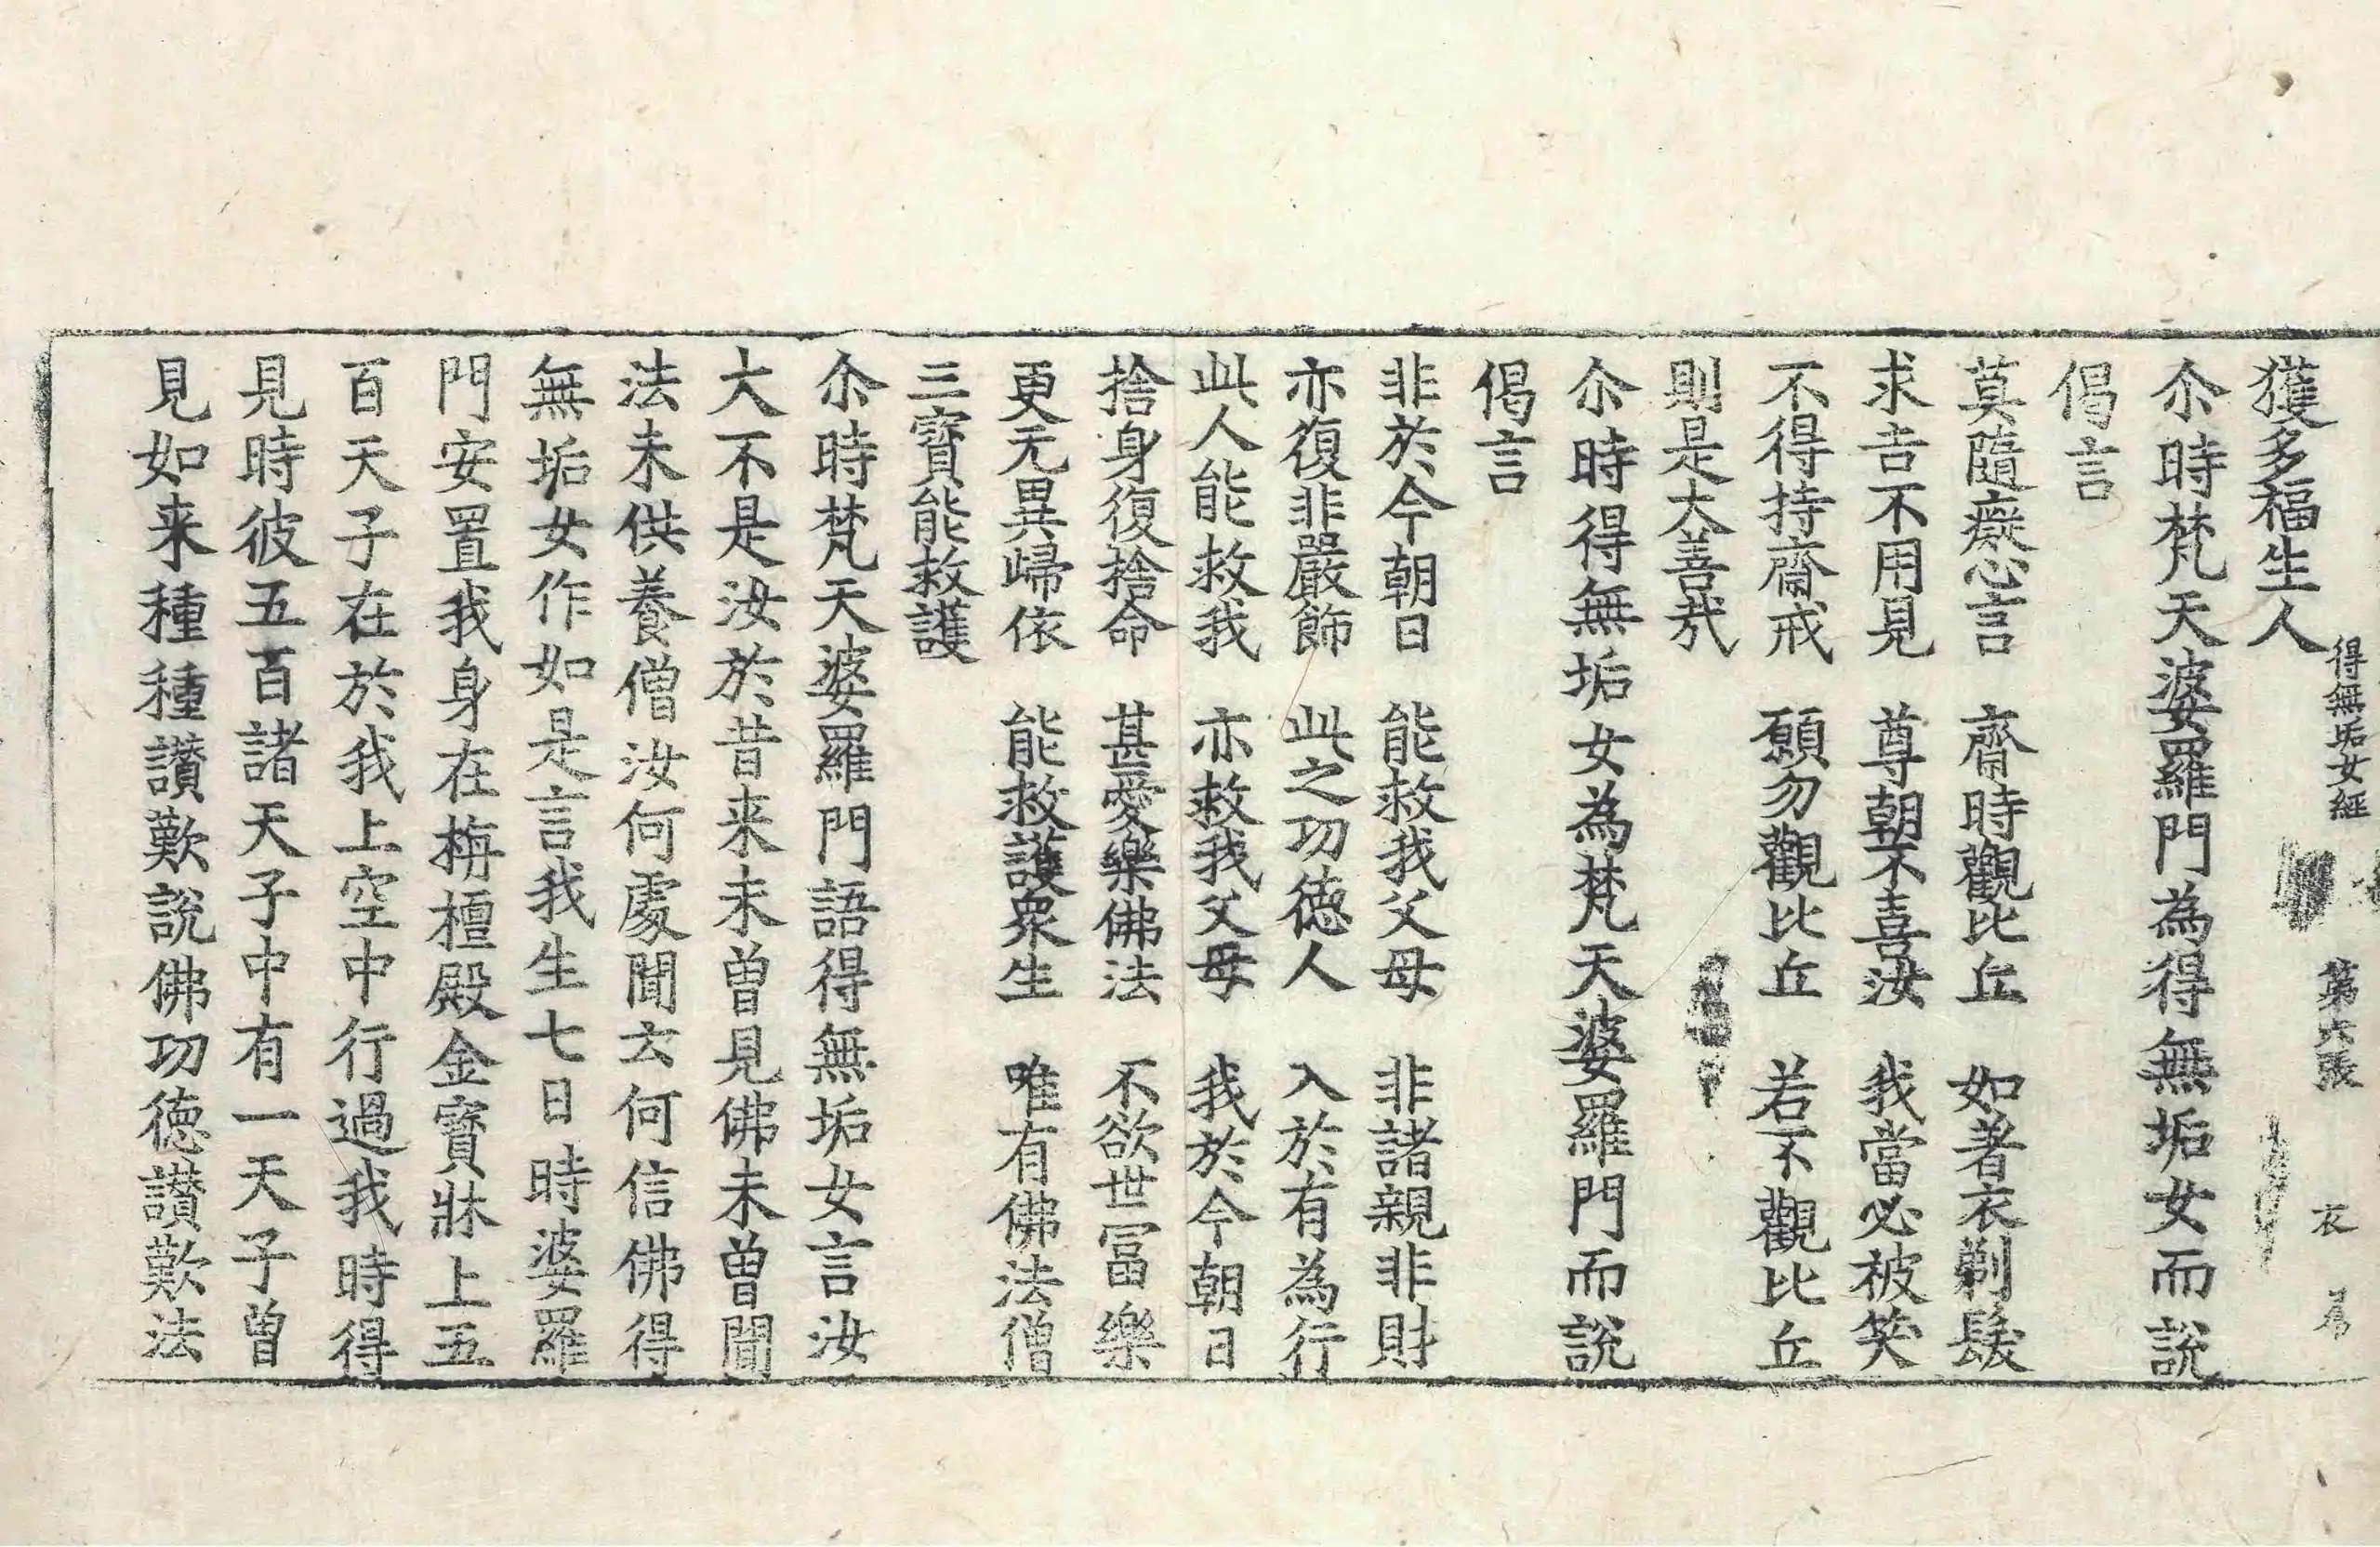 得無垢女經 第六張 衣
獲多福生人
尒時梵天婆羅門為得無垢女而說
偈言
莫隨癡心言 齋時觀比丘 如著衣剃髮
求吉不用見 尊朝不喜汝 我當必被笑
不得持齋戒 願勿觀比丘 若不觀比丘
則是大善㦲
尒時得無垢女為梵天婆羅門而說
偈言
非於今朝日 能救我父母 非諸親非財
亦復非嚴飾 此之功徳人 入於有為行
此人能救我 亦救我父母 我於今朝日
捨身復捨命 甚愛樂佛法 不欲世冨樂
更无異歸依 能救護衆生 唯有佛法僧
三寶能救護
尒時梵天婆羅門語得無垢女言汝
大不是汝於昔来未曾見佛未曾聞
法未供養僧汝何處聞云何信佛得
無垢女作如是言我生七日時婆羅
門安置我身在栴檀殿金寶牀上五
百天子在於我上空中行過我時得
見時彼五百諸天子中有一天子曾
見如来種種讃歎說佛功徳讃歎法